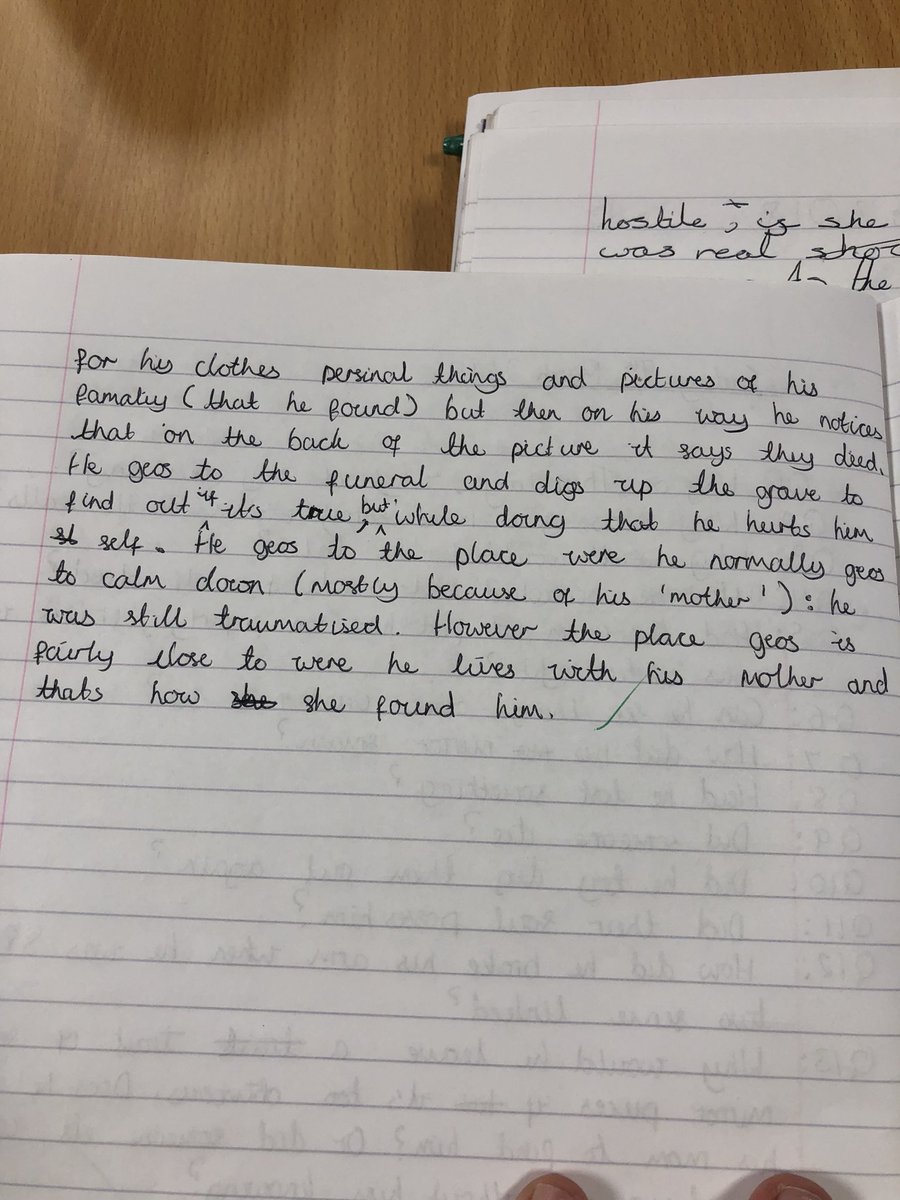 hostile, is she
was real
the
for his clothes persinal things and pictures of his
famaty (that he found) but then on his way he notices
that on the back of the picture it says they died.
He geos to the funeral and digs up the grave to
find out if its true, but while doing that he hurts him
self. He geos to the place were he normally geos
to calm down (mostly because of his 'mother'): he
was still traumatised. However the place geos is
fairly close to were he lives with his mother and
thats how she she found him.